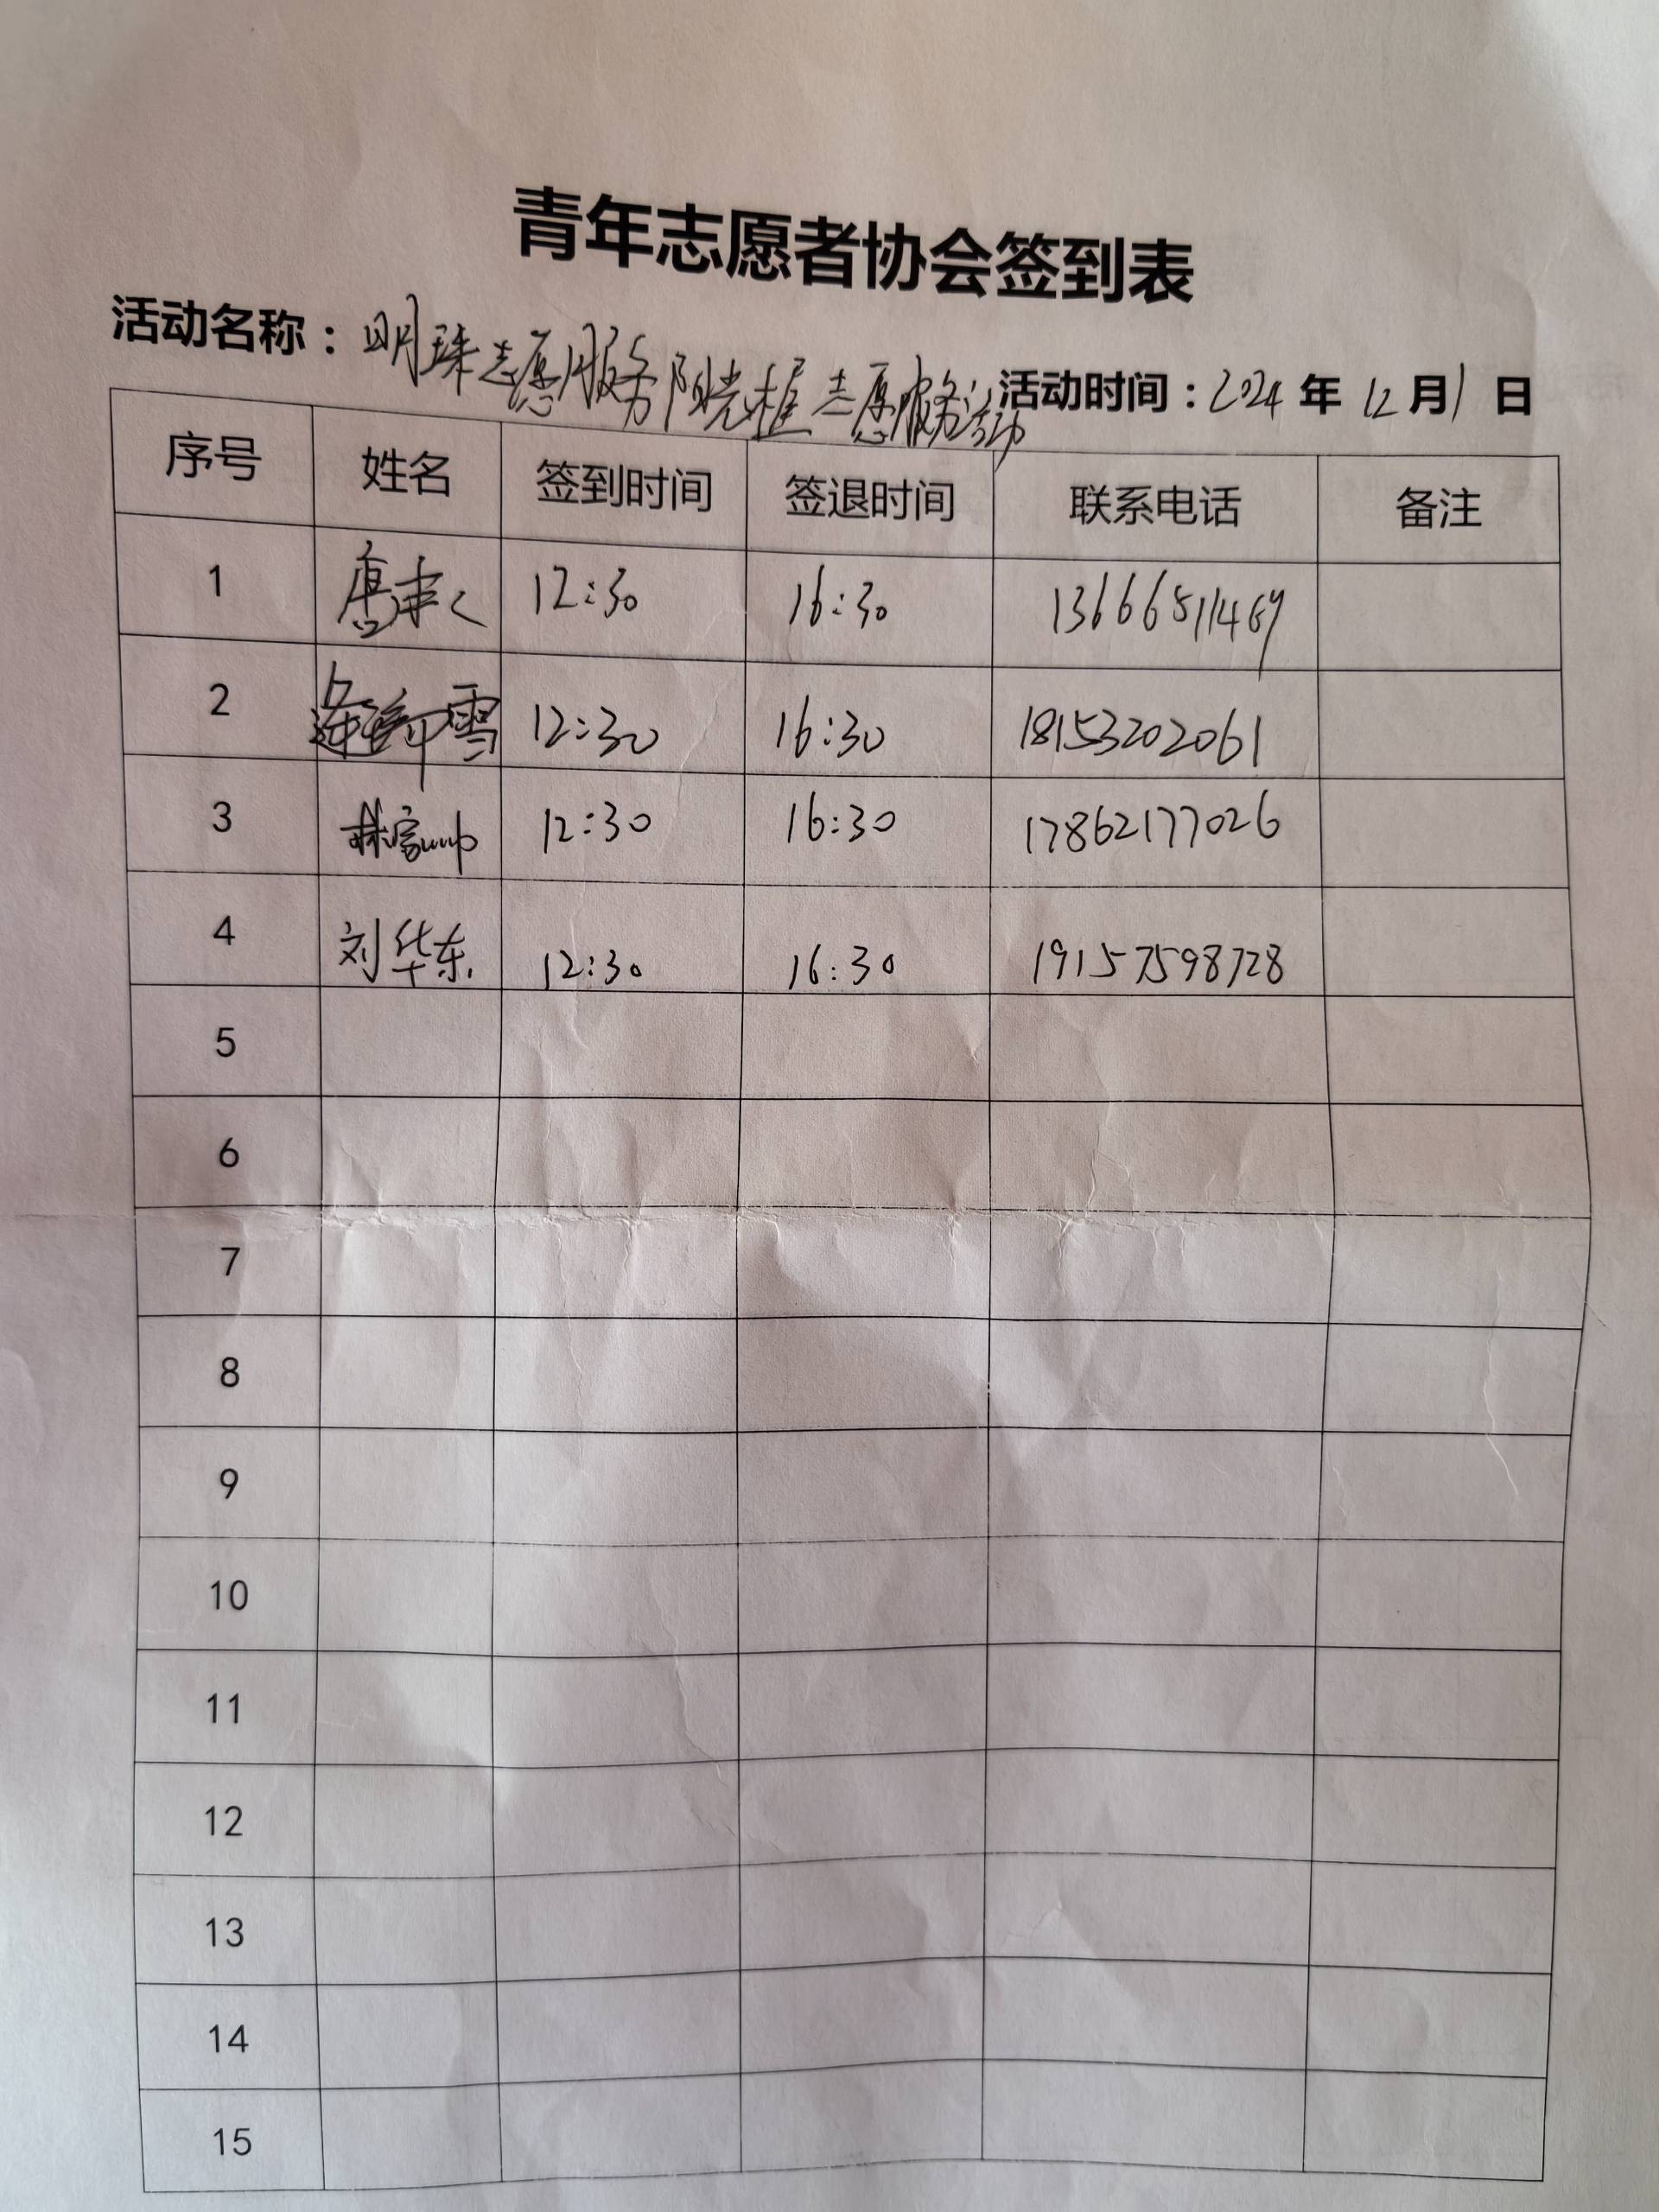 青年志愿者协会签到表
活动名称：明珠志愿服务阳光框志愿服务活动 活动时间：2024 年 12 月 1 日
序号 姓名 签到时间 签退时间 联系电话 备注
1 唐 12:30 16:30
2 雪 12:30 16:30 18153202061
3 林 12:30 16:30 17862177026
4 刘华东 12:30 16:30 19157598728
5
6
7
8
9
10
11
12
13
14
15